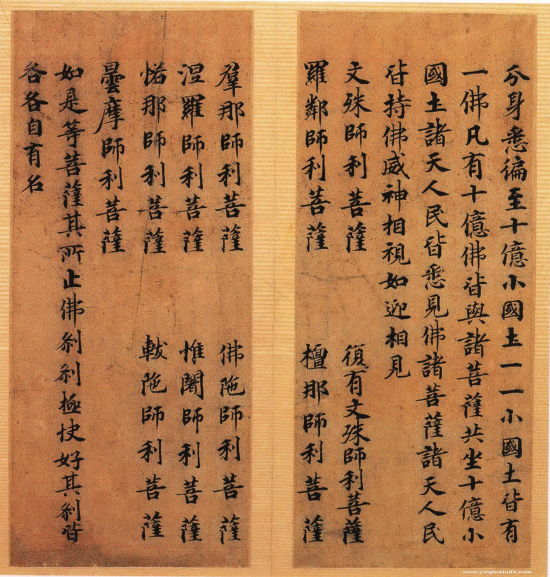 分身悉徧至十億小國土一一小國土皆有
一佛凡有十億佛皆與諸菩薩共坐十億小
國土諸天人民皆悉見佛諸菩薩諸天人民
皆持佛威神相視如迎相見
文殊師利菩薩 復有文殊師利菩薩
羅鄰師利菩薩 檀那師利菩薩
羣那師利菩薩 佛陁師利菩薩
涅羅師利菩薩 惟闍師利菩薩
那師利菩薩 軷陁師利菩薩
曇摩師利菩薩
如是等菩薩其所止佛剎剎極快好其剎皆
咎各自有名